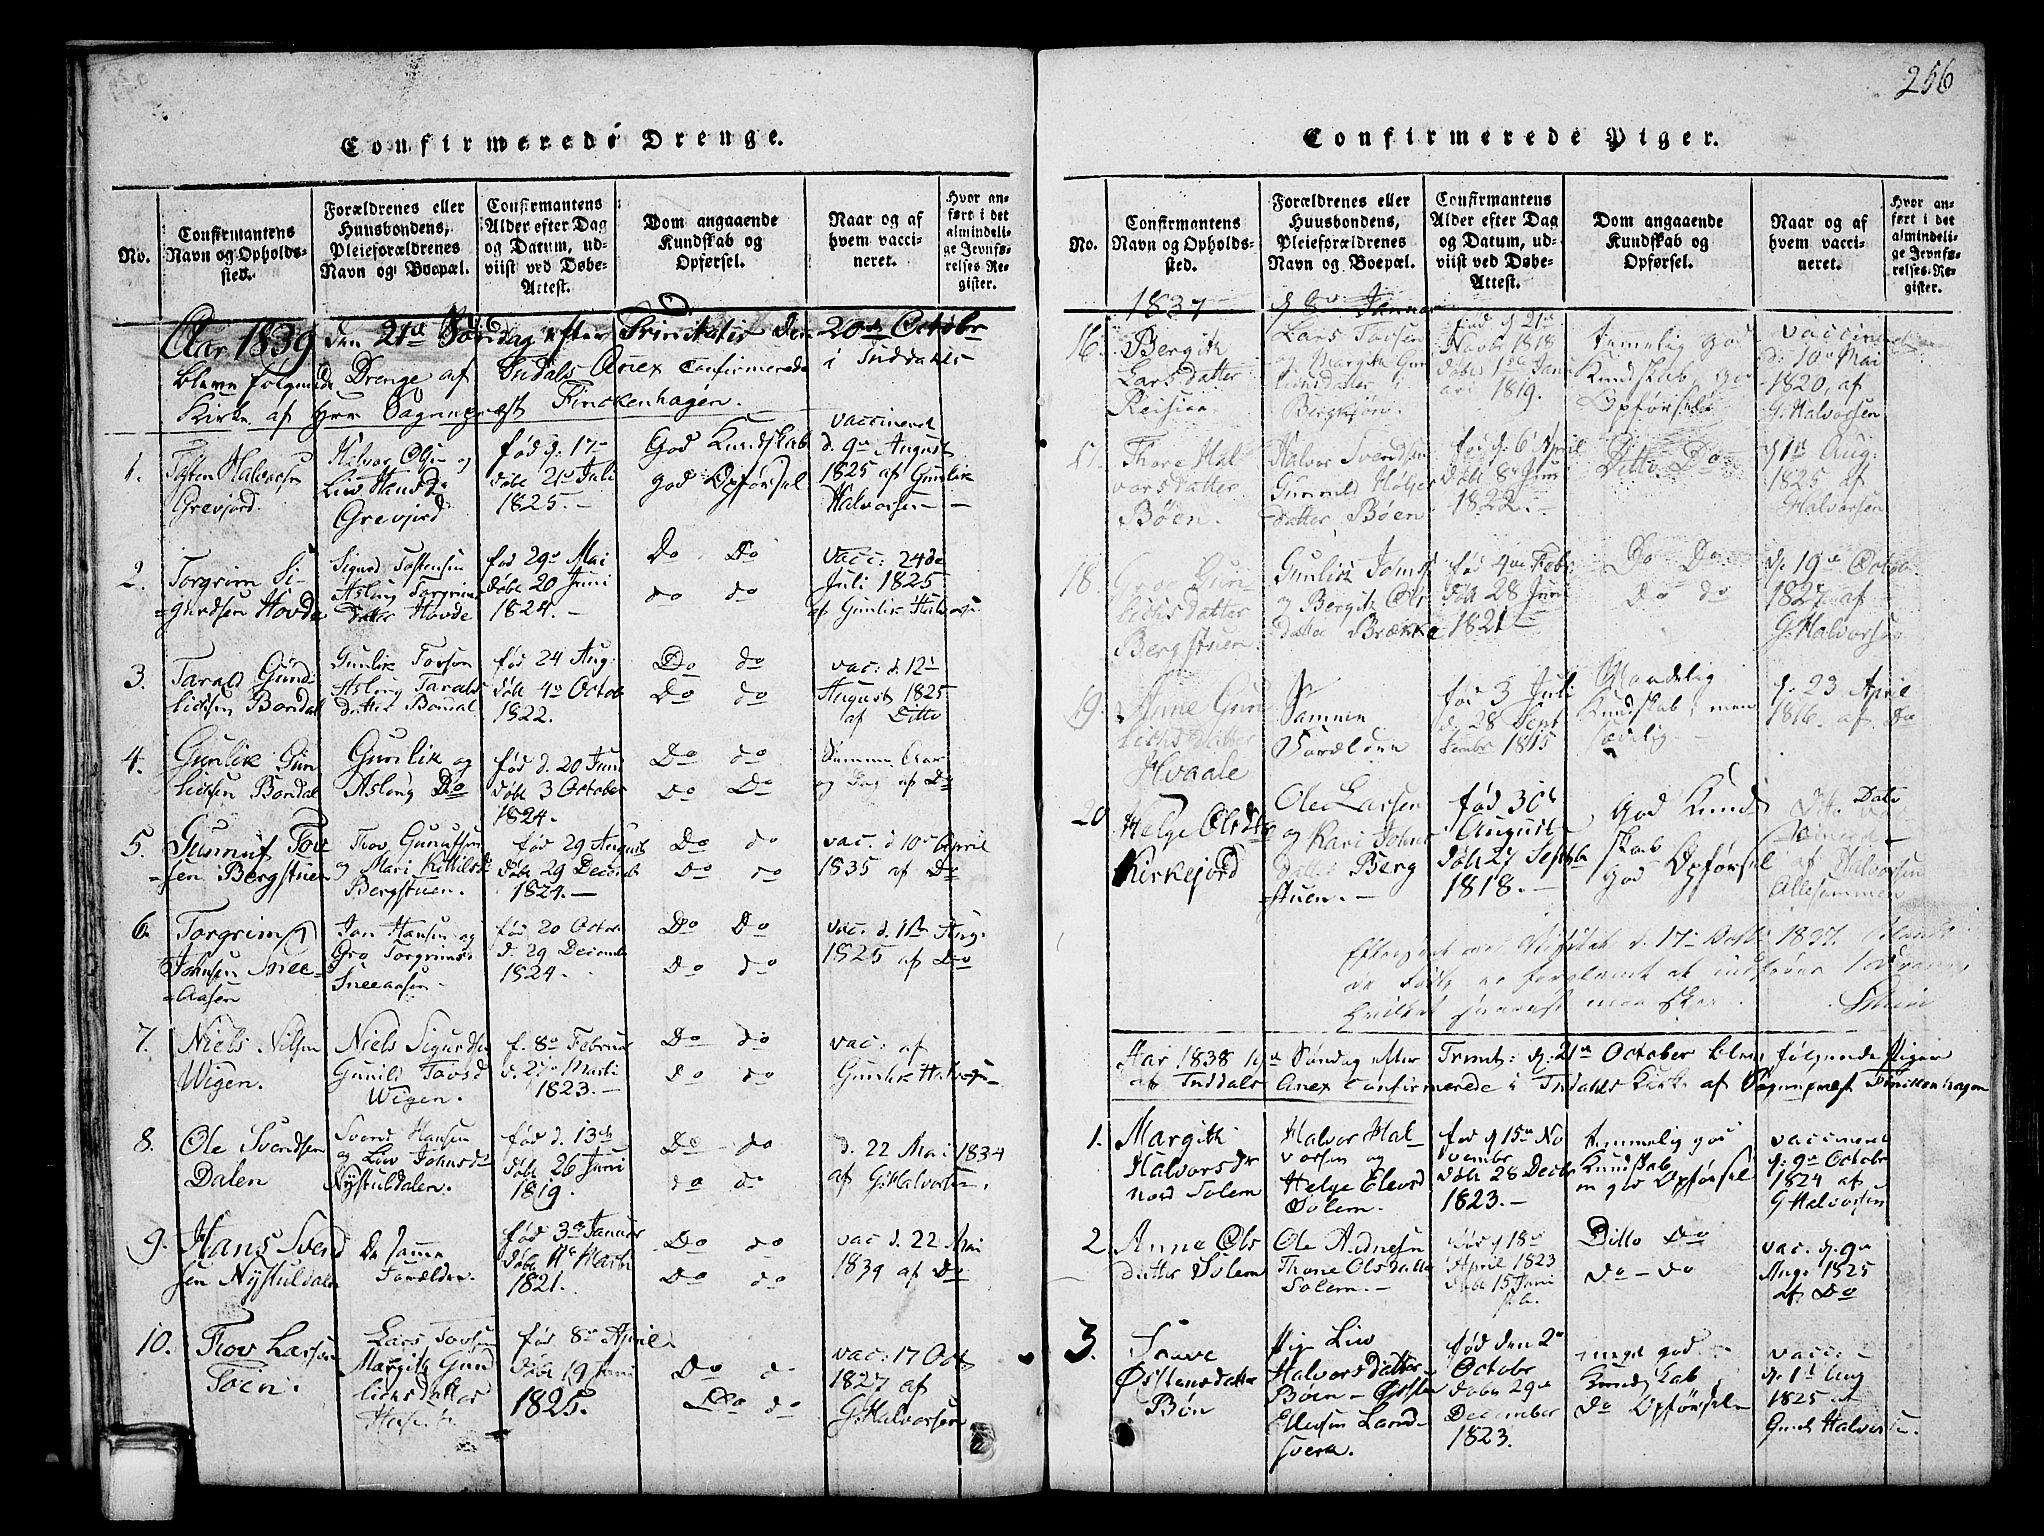 256
Confirmerede Drenge.
No.
Confirmantens Navn og Opholdssted.
Forældrenes eller Huusbondens, Pleieforældrenes Navn og Boepæl.
Confirmantens Alder efter Dag og Datum, udviist ved Døbe-Attest.
Dom angaaende Kundskab og Opførsel.
Naar og af hvem vaccineret.
Hvor anført i det almindelige Jevnførelses-Register.
Aar 1839 den 21de Søndag efter Trinitatis den 20de Octobr
bleve følgende Drenge af Indals Anex Confirmerede i Inddahls
Kirke af Herr Sognepræst Finckenhagen.
1.
Tosten Halvorsen
Grevjord.
Halvor Ols: og
Liv Hansd:
Grevjord
fød d. 17de
døbt 21de Juli
1825.
God Kundskab
god Opførsel
vaccinered
d. 9de August
1825 af Gunlik
Halvorsen
2.
Torgrim Si-
gurdsen Hovde
Sigurd Tostensen
Asloug Torgrims
datter Hovde
fød 29de Mai
døbt 20 Juni
1824.
Do Do
do do
vacc: 24de
Juli 1825
af Gunlik Halvors:
3.
Tarald Gund-
licksen Bondal
Gunlik Torson
Asloug Taralds
datter Bondal
fød 24 Aug:
døbt 4de Octob
1822.
Do do
Do do
vac: d. 12te
August 1825
af Ditto
4.
Gunlik Gun
licksen Bondal
Gunlik og
Asloug Do
fød d. 20 Juni
døbt 3 October
1824.
Do do
do Do
Samme Aar
og Dag af Do
5.
Gunnuf Tov
sen Bergstuen
Tov Gunufsen
og Mari Kittilsd
Bergstuen.
fød 29 August
døbt 29 Decemb
1824.
Do do
Do do
vac. d. 10de April
1835 af Do
6.
Torgrim
Johnsen Snee-
Aasen
Jon Hansen og
Gro Torgrimsd
Sneeaasen
fød 20 Octor
d. 29 Decemb
1824.
Do Do
Do do
vac. d. 1ste Aug.
1825 af Do
7.
Niels Nilsen
Wigen.
Niels Sigurdsen
Gunild Tovsd
Wigen.
f. 8de Februar
d. 27de Marti
1823.
Do do
Do do
vac: af
Gunlik Halvors
8.
Ole Svendsen
Dalen
Svend Hansen
og Liv Johnsd
Nystuldalen.
fød d. 13de
døbt 26 Juni
1819.
Do do
do do
d. 22 Mai 1834
af G: Halvorsen.
9.
Hans Svend
sen Nystuldalen
De samme
Forældre.
fød 3de Januar
døbt 11te Marti
1821.
Do do
Do do
vac d. 22 Mai
1839 af Do
10.
Tov Larsen
Toen.
Lars Tovsen
Margith Gund
licksdatter
fød 8de April
døbt 19 Juni
1825.
Do do
Do do
vac: 17 Oct
1827 af
G: Halvorsen
Confirmerede Piger.
No.
Confirmantens Navn og Opholdssted.
Forældrenes eller Huusbondens, Pleieforældrenes Navn og Boepæl.
Confirmantens Alder efter Dag og Datum, udviist ved Døbe-Attest.
Dom angaaende Kundskab og Opførsel.
Naar og af hvem vaccineret.
Hvor anført i det almindelige Jevnførelses-Register.
1837 d 8de Januar
16.
Bergith
Larsdatter
Lars Tovsen
og Margith Gun
licksdatter
fød d. 21de
Novbr 1818
døbt 1ste Janu
ari 1819.
temelig god
Kundskab, god
Opførsel
vaccinered
d. 10de Mai
1820, af
G: Halvorsen
17.
Thore Hal
vorsdatter
Bøen.
Halvor Svendsen
Gunnild Holjer
datter Bøen
fød d. 6 April
døbt 8de Juni
1822.
Ditto Do
d. 1ste Aug:
1825 af
Halvorsen
18.
Groe Gun
licksdatter
Bergstuen.
Gunlick Joms
og Bergit Ols
datter Brække
fød 4de Febr
døbt 28 Juni
1821
Do Do
Do do
d. 19de Octob.
1827 af
G: Halvorsen
19.
Anne Gun
licksdatter
Hvaale
Samme
Forældre
fød 3 Juli
d. 28 Sept
tembr 1815
Maadelig
Kundskab, men
sædelig
d. 23 April
1816. af Do
20
Helge Olsdtr
Kirkejord
Ole Larsen
og Kari Johns
datter Berg
stuen.
fød 30te
August
døbt 27 Septbr
1818.
God Kund
skab
god Opførsel
Dato
af Halvorsen
Allesammen
d. 17de 1837.
Aar 1838 19de Søndag efter Trinit: d: 21de October bleve følgende Piger
af Inddals Anex Confirmerede i Indahls Kirke af Sognepræst Finckenhagen
1.
Margith
Halvorsdtr
nord Solem
Halvor Hal
vorsen og
Helge Elevsd
Solem.
fød d 15de No
vembr
døbt 28 Decbr
1823.
temmelig god
Kundskab
m god Opførsel
vaccineret
d. 9de Octobr
1824 af
G Halvorsen
2.
Anne Ols
datter Solem
Ole Aadnesen
Thone Olsdatter
Solem.
fød d 18de
April 1823
døbt 15 Juni
Ditto Do
do - do
vac. d. 9de
Aug. 1825
af Do
3.
Østensdatter
Bøn
Pige Liv
Halvorsdatter
Bøen - Østen
Ellevsen Land-
sverk.
fød den 2de
Octobr
døbt 29de
December
1823.
meget god
Kundskab
do Opførsel
vacc:
d. 1ste Aug
1825 af
Gund: Halvorsen.